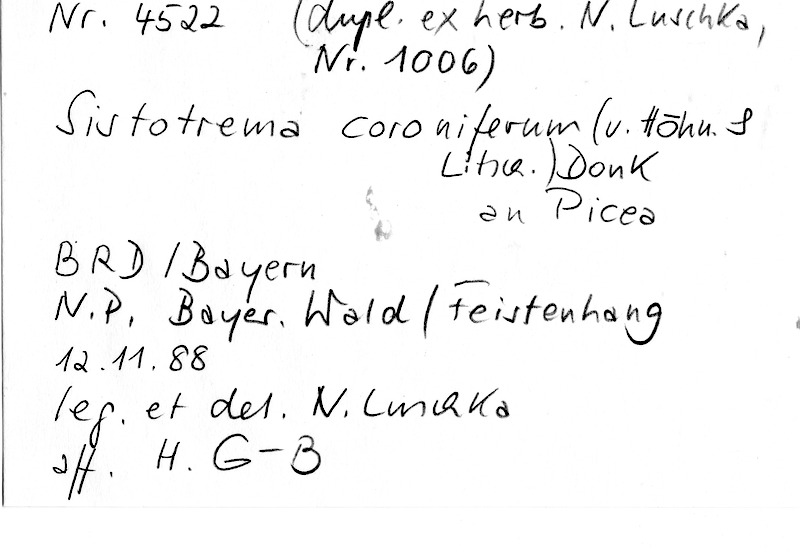 Nr. 4522 (dupl. ex herb. N. Luschka,
Nr. 1006)
Sistotrema coroniferum (v. Höhn. &
Litsch.) Donk
an Picea
BRD / Bayern
N.P. Bayer. Wald / Feistenhang
12.11.88
leg. et det. N. Luschka
aff. H. G-B